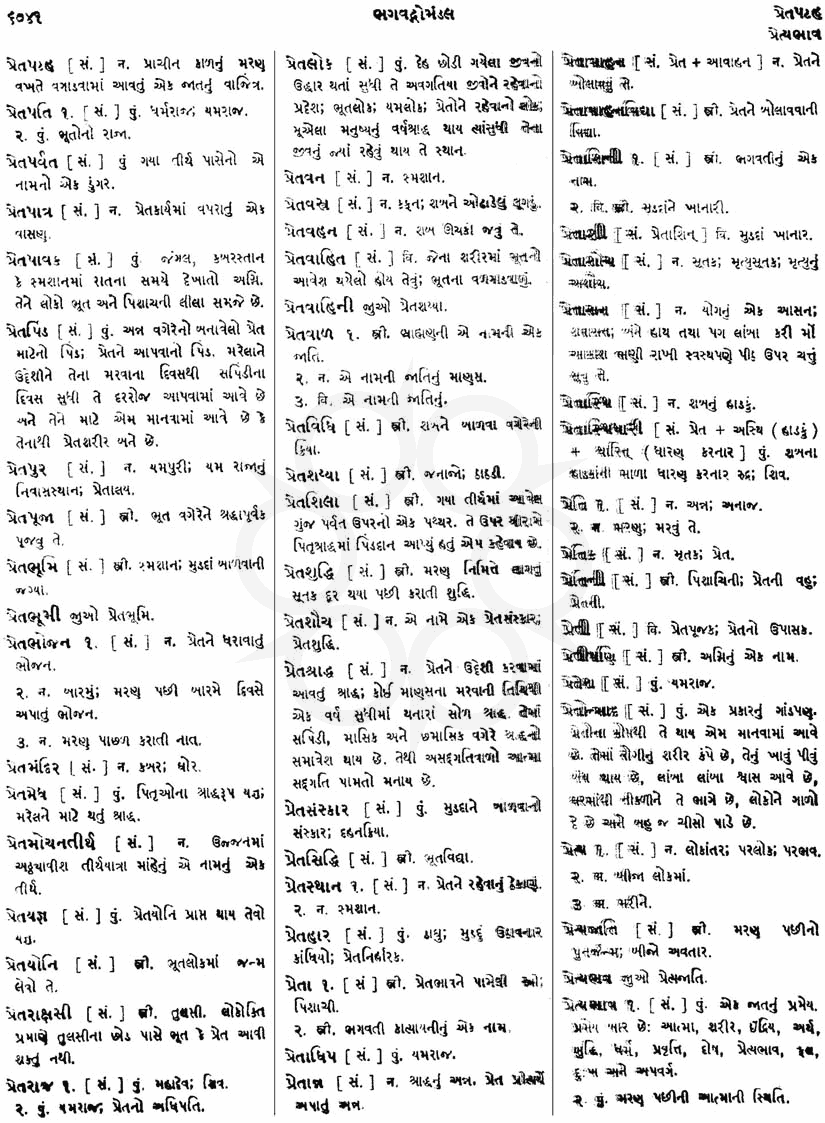 ૬૦૪૧
ભગવદ્ગોમંડલ
પ્રેતપટહ
પ્રેત્યભાવ
પ્રેતપટહ [ સં. ] ન. પ્રાચીન કાળનું મરણ
વખતે વગાડવામાં આવતું એક જાતનું વાજિંત્ર.
પ્રેતપતિ ૧. [ સં. ] પું. ધર્મરાજ; યમરાજ.
૨. પું. ભૂતોનો રાજા.
પ્રેતપર્વત [ સં. ] પું ગયા તીર્થ પાસેનો એ
નામનો એક ડુંગર.
પ્રેતપાત્ર [ સં. ] ન. પ્રેતકાર્યમાં વપરાતું એક
વાસણ.
પ્રેતપાવક [ સં. ] પું. જંગલ, કબરસ્તાન
કે સ્મશાનમાં રાતના સમયે દેખાતો અગ્નિ.
તેને લોકો ભૂત અને પિશાચની લીલા સમજે છે.
પ્રેતપિંડ [ સં. ] પું. અન્ન વગેરેનો બનાવેલો પ્રેત
માટેનો પિંડ; પ્રેતને આપવાનો પિંડ. મરેલાને
ઉદ્દેશીને તેના મરવાના દિવસથી સપિંડીના
દિવસ સુધી તે દરરોજ આપવામાં આવે છે
અને તેને માટે એમ માનવામાં આવે છે કે
તેનાથી પ્રેતશરીર બને છે.
પ્રેતપુર [ સં. ] ન. યમપુરી; યમ રાજાનું
નિવાસસ્થાન; પ્રેતાલય.
પ્રેતપૂજા [ સં. ] સ્ત્રી. ભૂત વગેરેને શ્રદ્ધાપૂર્વક
પૂજવું તે.
પ્રેતભૂમિ [ સં. ] સ્ત્રી. સ્મશાન; મુડદાં બાળવાની
જગ્યા.
પ્રેતભૂમી જુઓ પ્રેતભૂમિ.
પ્રેતભોજન ૧. [ સં. ] ન. પ્રેતને ધરાવાતું
ભોજન.
૨. ન. બારમું; મરણ પછી બારમે દિવસે
અપાતું ભોજન.
૩. ન. મરણ પાછળ કરાતી નાત.
પ્રેતમંદિર [ સં. ] ન. કબર; ઘોર.
પ્રેતમેધ [ સં. ] પું. પિતૃઓના શ્રાદ્ધરૂપ યજ્ઞ;
મરેલાને માટે થતું શ્રાદ્ધ.
પ્રેતમોચનતીર્થ [ સં. ] ન. ઉજ્જનમાં
અઠ્ઠાવીશ તીર્થયાત્રા માંહેનું એ નામનું એક
તીર્થ.
પ્રેતયજ્ઞ [ સં. ] પું. પ્રેતયોનિ પ્રાપ્ત થાય તેવો
યજ્ઞ.
પ્રેતયોનિ [ સં. ] સ્ત્રી. ભૂતલોકમાં જન્મ
લેવો તે.
પ્રેતરાક્ષસી [ સં. ] સ્ત્રી. તુલસી. લોકોક્તિ
પ્રમાણે તુલસીના છોડ પાસે ભૂત કે પ્રેત આવી
શકતું નથી.
પ્રેતરાજ ૧. [ સં. ] પું. મહાદેવ; શિવ.
૨. પું. યમરાજ; પ્રેતનો અધિપતિ.
પ્રેતલોક [ સં. ] પું. દેહ છોડી ગયેલા જીવનો
ઉદ્ધાર થતાં સુધી તે અવગતિયા જીવોને રહેવાનો
પ્રદેશ; ભૂતલોક; યમલોક; પ્રેતોને રહેવાનો લોક;
મૂએલા મનુષ્યનું વર્ષશ્રાદ્ધ થાય ત્યાંસુધી તેના
જીવનું જ્યાં રહેવું થાય તે સ્થાન.
પ્રેતવન [ સં. ] ન. સ્મશાન.
પ્રેતવસ્ત્ર [ સં. ] ન. કફન; શબને ઓઢાડેલું લૂગડું.
પ્રેતવહન [ સં. ] ન. શબ ઊંચકી જવું તે.
પ્રેતવાહિત [ સં. ] વિ. જેના શરીરમાં ભૂતનો
આવેશ થયેલો હોય તેવું; ભૂતના વળગાડવાળું.
પ્રેતવાહિની જુઓ પ્રેતશય્યા.
પ્રેતવાળ ૧. સ્ત્રી. બ્રાહ્મણની એ નામની એક
જાતિ.
૨. ન. એ નામની જાતિનું માણસ.
૩. વિ. એ નામની જાતિનું.
પ્રેતવિધિ [ સં. ] સ્ત્રી. શબને બાળવા વગેરેની
ક્રિયા.
પ્રેતશય્યા [ સં. ] સ્ત્રી. જનાજો; ઠાઠડી.
પ્રેતશિલા [ સં. ] સ્ત્રી. ગયા તીર્થમાં આવેલ
ગુંજ પર્વત ઉપરનો એક પથ્થર. તે ઉપર શ્રીરામે
પિતૃશ્રાદ્ધમાં પિંડદાન આપ્યું હતું એમ કહેવાય છે.
પ્રેતશુદ્ધિ [ સં. ] સ્ત્રી. મરણ નિમિત્તે લાગતું
સૂતક દૂર થયા પછી કરાતી શુદ્ધિ.
પ્રેતશૌચ [ સં. ] ન. એ નામે એક પ્રેતસંસ્કાર;
પ્રેતશુદ્ધિ.
પ્રેતશ્રાદ્ધ [ સં. ] ન. પ્રેતને ઉદ્દેશી કરવામાં
આવતું શ્રાદ્ધ; કોઈ માણસના મરવાની તિથિથી
એક વર્ષ સુધીમાં થનારાં સોળ શ્રાદ્ધ. તેમાં
સપિંડી, માસિક અને છમાસિક વગેરે શ્રાદ્ધનો
સમાવેશ થાય છે. તેથી અસદ્ગતિવાળો આત્મા
સદ્ગતિ પામતો મનાય છે.
પ્રેતસંસ્કાર [ સં. ] પું. મુડદાને બાળવાનો
સંસ્કાર; દહનક્રિયા.
પ્રેતસિદ્ધિ [ સં. ] સ્ત્રી. ભૂતવિદ્યા.
પ્રેતસ્થાન ૧. [ સં. ] ન. પ્રેતને રહેવાનું ઠેકાણું.
૨. ન. સ્મશાન.
પ્રેતહાર [ સં. ] પું. ડાઘુ; મુડદું ઉઠાવનાર
કાંધિયો; પ્રેતનિર્હારક.
પ્રેતા ૧. [ સં. ] સ્ત્રી. પ્રેતભાવને પામેલી સ્ત્રી;
પિશાચી.
૨. સ્ત્રી. ભગવતી કાત્યાયનીનું એક નામ.
પ્રેતાધિપ [ સં. ] પું. યમરાજ.
પ્રેતાન્ન [ સં. ] ન. શ્રાદ્ધનું અન્ન. પ્રેત પ્રીત્યર્થે
અપાતું અન્ન.
પ્રેતાવાહન [ સં. પ્રેત + આવાહન ] ન. પ્રેતને
બોલાવવું તે.
પ્રેતાવાહનવિદ્યા [ સં. ] સ્ત્રી. પ્રેતને બોલાવવાની
વિદ્યા.
પ્રેતાશિની ૧. [ સં. ] સ્ત્રી. ભગવતીનું એક
નામ.
૨. વિ. સ્ત્રી. મુડદાંને ખાનારી.
પ્રેતાશી [ સં. પ્રેતાશિન્ ] વિ. મુડદાં ખાનાર.
પ્રેતાશૌચ [ સં. ] ન. સૂતક; મૃત્યુસૂતક; મૃત્યુનું
અશૌચ.
પ્રેતાસન [ સં. ] ન. યોગનું એક આસન;
શવાસન; બંને હાથ તથા પગ લાંબા કરી મોં
આકાશ ભણી રાખી સ્વસ્થપણે પીઠ ઉપર ચત્તું
સૂવું તે.
પ્રેતાસ્થિ [ સં. ] ન. શબનું હાડકું.
પ્રેતાસ્થિધારી [ સં. પ્રેત + અસ્થિ ( હાડકું )
+ ધારિન્ ( ધારણ કરનાર ) ] પું. શબના
હાડકાંની માળા ધારણ કરનાર રુદ્ર; શિવ.
પ્રેતિ ૧. [ સં. ] ન. અન્ન; અનાજ.
૨. ન. મરણ; મરવું તે.
પ્રેતિક [ સં. ] ન. મૃતક; પ્રેત.
પ્રેતિની [ સં. ] સ્ત્રી. પિશાચિની; પ્રેતની વહુ;
પ્રેતસી.
પ્રેતી [ સં. ] વિ. પ્રેતપૂજક; પ્રેતનો ઉપાસક.
પ્રેતીષણિ [ સં. ] સ્ત્રી. અગ્નિનું એક નામ.
પ્રેતેશ [ સં. ] પું. યમરાજ.
પ્રેતોન્માદ [ સં. ] પું. એક પ્રકારનું ગાંડપણ.
પ્રેતોના કોપથી તે થાય એમ માનવામાં આવે
છે. તેમાં રોગીનું શરીર કંપે છે, તેનું ખાવું પીવું
બંધ થાય છે, લાંબા લાંબા શ્વાસ આવે છે,
ઘરમાંથી નીકળીને તે ભાગે છે, લોકોને ગાળો
દે છે અને બહુ જ ચીસો પાડે છે.
પ્રેત્ય ૧. [ સં. ] ન. લોકાંતર; પરલોક; પરભવ.
૨. અ. બીજા લોકમાં.
૩. અ. મરીને.
પ્રેત્યજાતિ [ સં. ] સ્ત્રી. મરણ પછીનો
પુનર્જન્મ; બીજો અવતાર.
પ્રેત્યભવ જુઓ પ્રેત્યજાતિ.
પ્રેત્યભાવ ૧. [ સં. ] પું. એક જાતનું પ્રમેય.
પ્રમેય બાર છે: આત્મા, શરીર, ઇંદ્રિય, અર્થ,
બુદ્ધિ, ધર્મ, પ્રવૃત્તિ, દોષ, પ્રેત્યભાવ, ફલ,
દુઃખ અને અપવર્ગ.
૨. પું. મરણ પછીની આત્માની સ્થિતિ.